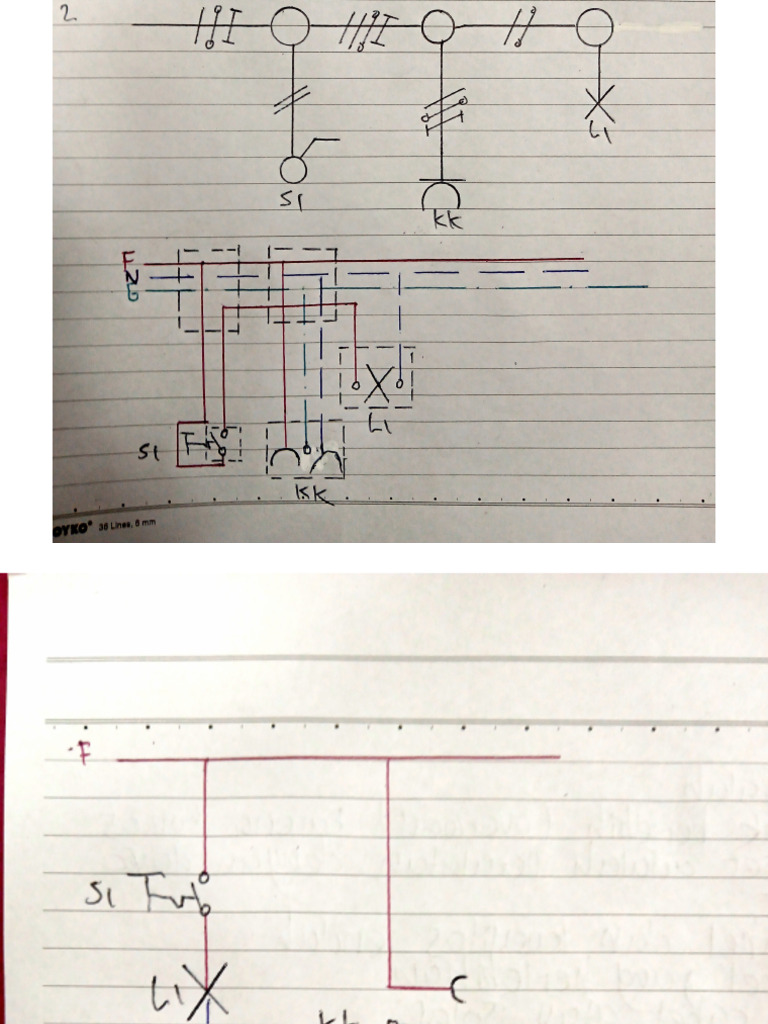 2.
S1
KK
L1
F
N
G
L1
S1
KK
OYKO® 36 Lines, 6 mm
F
S1
L1